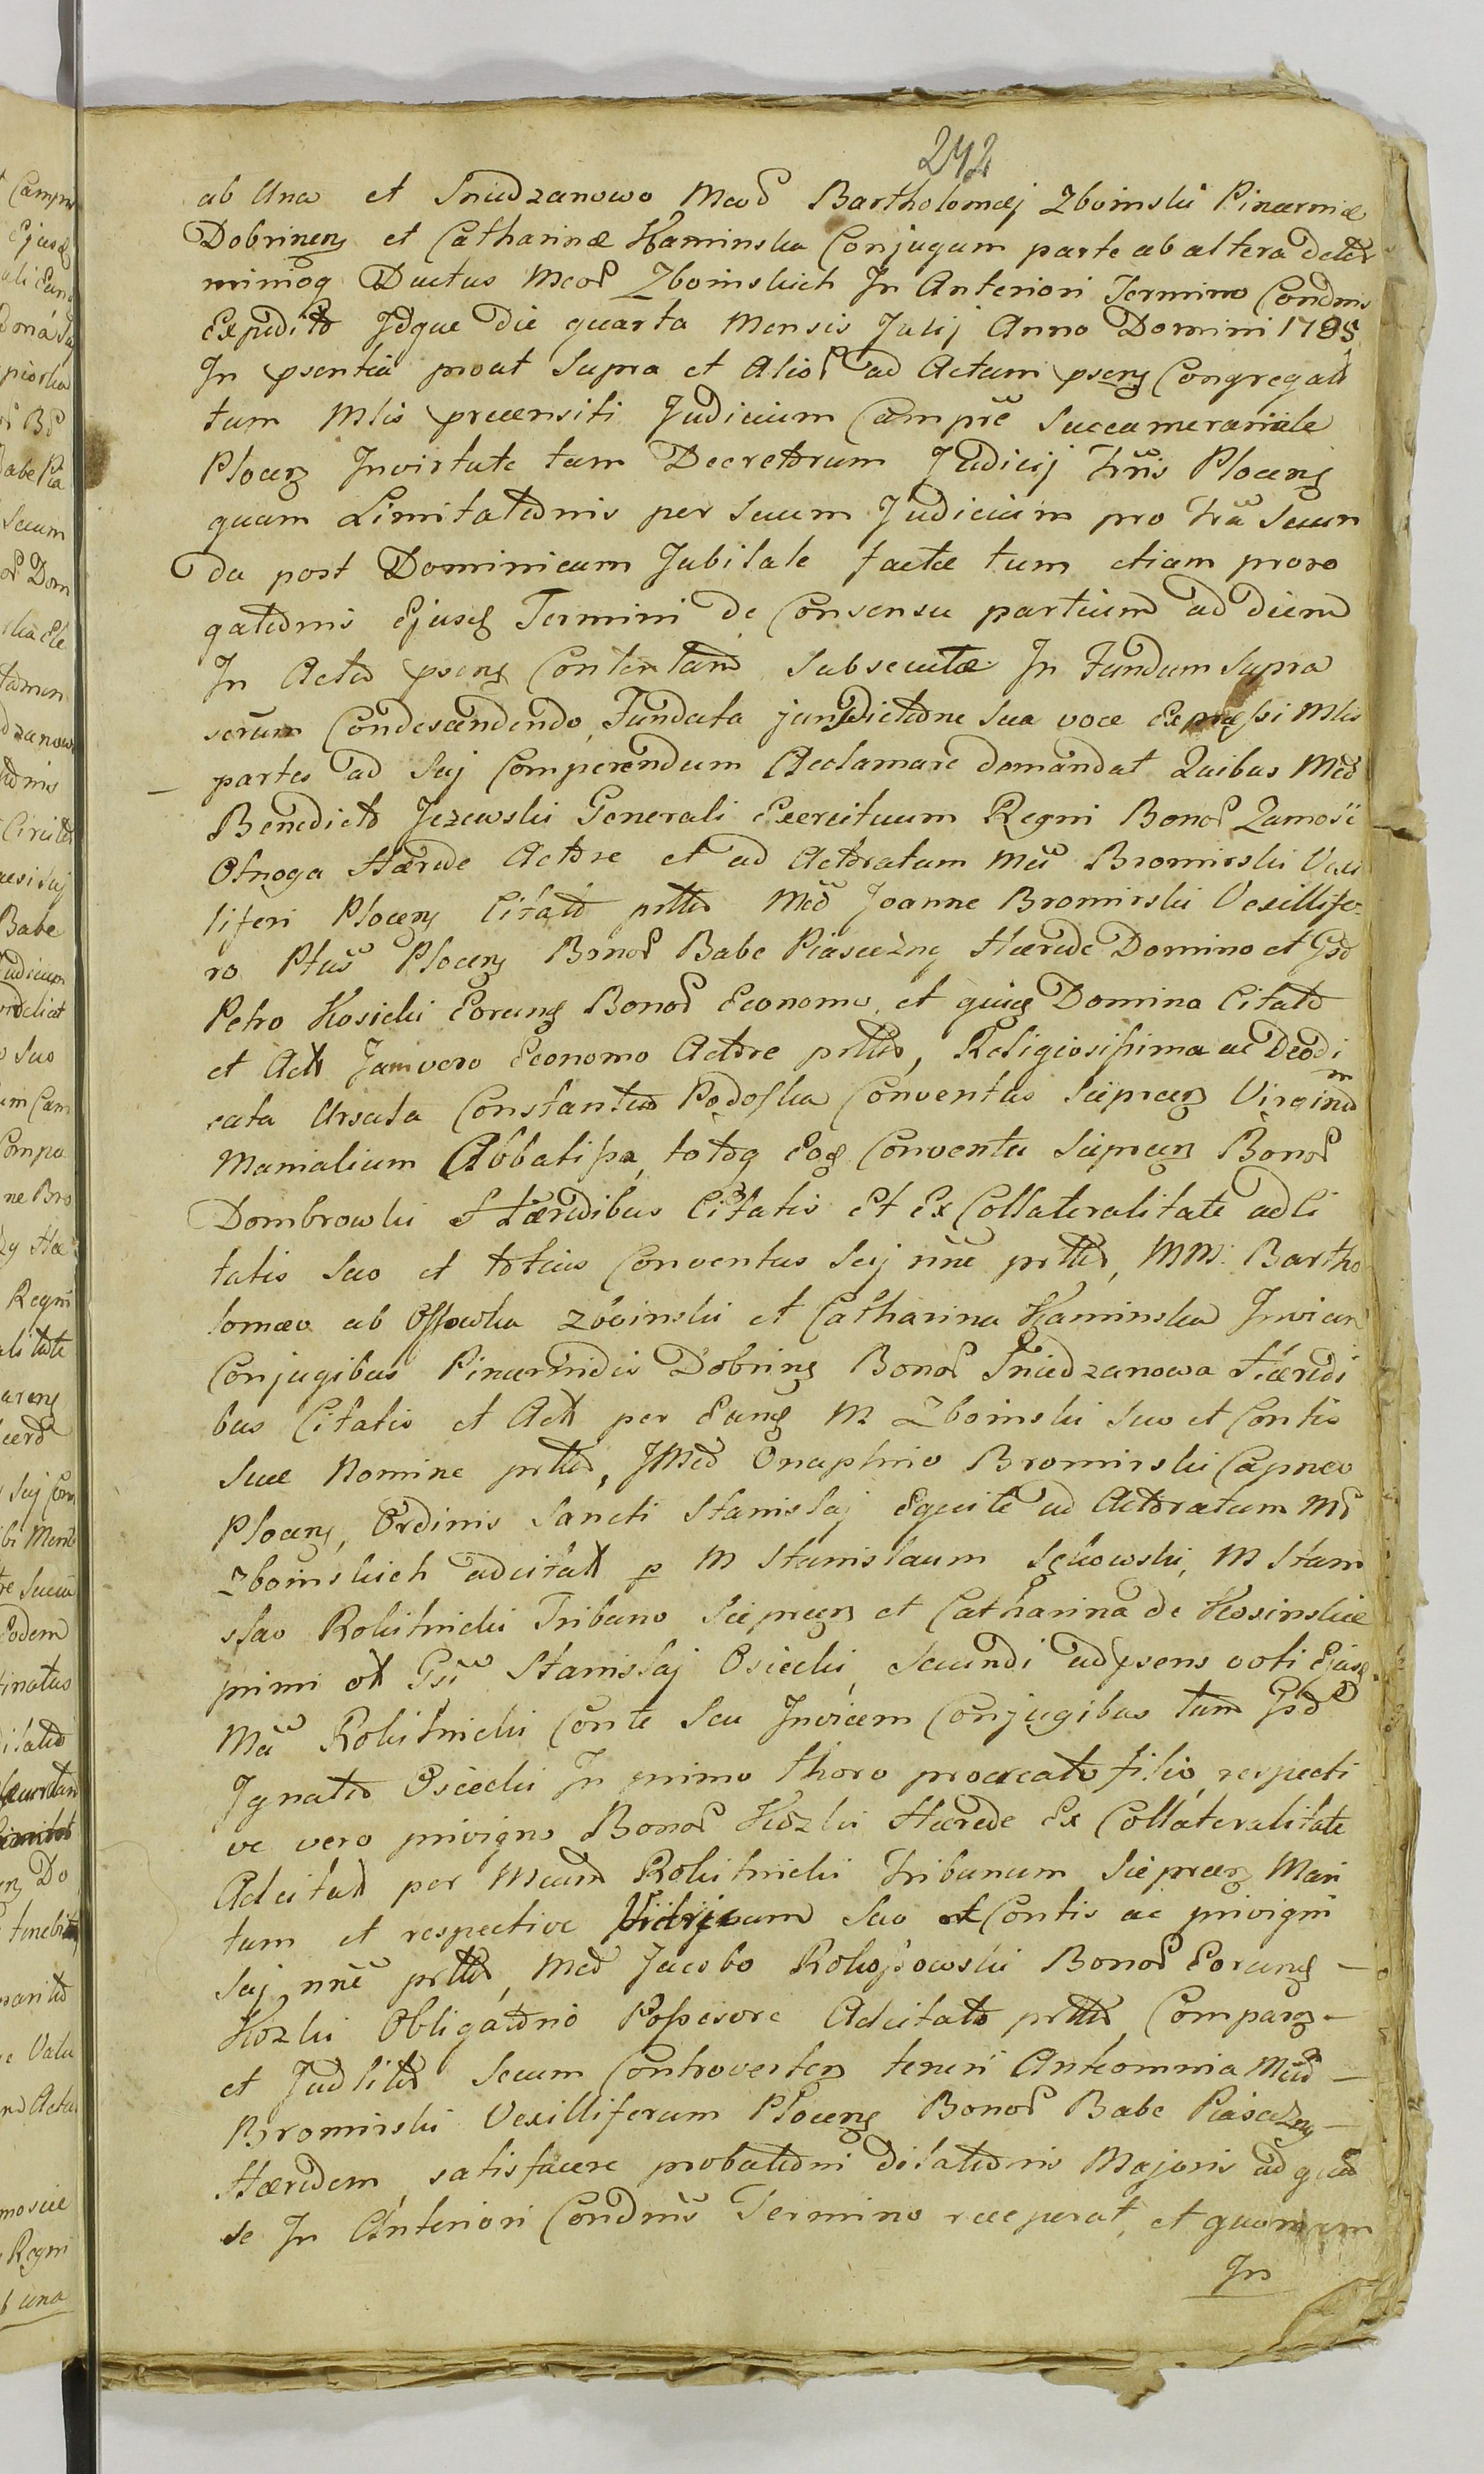 242
ab Una et Sniedzanowo Mcor Bartholomæj Zboinski Pincernæ
Dobrinens et Catharinæ Kaminska Conjugum parte ab altera deter
minioq Ductus Mcor Zboinskich In Anteriori Termino Condnis
Expedito Idque Die quarta Mensis Julij Anno Domini 1785
In psentia prout Supra et Alior ad Actum psens Congregator
tum Mlis precensiti Judicium Campre Succamerariale
Plocens Invirtute tam Decretorum Judicij Trris Plocens
quam Limitationis per Suum Judicium pro Fra Secun
da post Dominicam Jubilate factæ tum etiam proro
gationis Ejusq Termini de Consensu partium ad diem
In Acto psens Contentam Subsecutæ In Fundum Supra
scrum Condescendendo, Fundata jurisdictione Sua voce Expressi Mlis
partes ad Suj Comperendum Acclamare demandat Quibus Mco
Benedicto Jezewski Generali Exercituum Regni Bonor Zamosic
Otnoga Hærede Actore et ad Actoratum Mci Bromirski Vexi
liferi Plocens Citato prtte Mco Joanne Bromirski Vexillife-
ro Ptus Plocens Bonor Babe Piaseczny Hærede Domino et Gso
Petro Kosicki Eorunq Bonor Economo, et quiq Domino Citato
et Act Jamvero Economo Actore prtte, Religiosissima ac Deodi
cata Ursula Constantia Podoska Conventus Sieprcens Virginum
Manialium Abbatissa, totoq Eoq Conventu Sieprcens Bonor
Dombrowki Hæredibus Citatis Et Ex Collateralitate adci
tatis Suo et totius Conventus Suj nne prtte, MM: Bartho
lomæo ab Ossowka Zboinski et Catharina Kaminska Invicem
Conjugibus Pincernidis Dobrins Bonor Sniedzanowa Hæredi
bus Citatis et Act per Eunq M Zboinski Suo et Contis
Suæ Nomine prtte, JMco Onuphrio Bromirski Capneo
Plocens, Ordinis Sancti Stanislaj Equite ad Actoratum Mcor
Zboinskich adcitat p M Stanislaum Sękowski, M Stani
slao Rokitnicki Tribuno Sieprcens et Catharina de Kosinskie
primi ot Gsi Stanislaj Osiecki, Secundi ad psens voti Ejusq
Mci Rokitnicki Conte Seu Invicem Conjugibus tum Gso
Ignatio Osiecki In primo thoro procreato filio respecti
ve vero privigno Bonor Kozki Hærede Ex Collateralitate
Adcitat per Mcum Rokitnicki Tribunum Sieprcens Mari
tum et respective Vitricum Suo et Contis ac privigni
Suj nne prtte, Mco Jacobo Rokossowski Bonor Eorunq
Kozki Obligatorio Possesore Adcitato prtte Compars
et Judlite Secum Controverten teneri Anteomnia Mcum
Bromirski Vexilliferum Plocens Bonor Babe Piaseczny
Hæredem satisfacere probationi dilationis Majoris ad qua
se In Anteriori Condnis Termino receperat, et quoniam
In